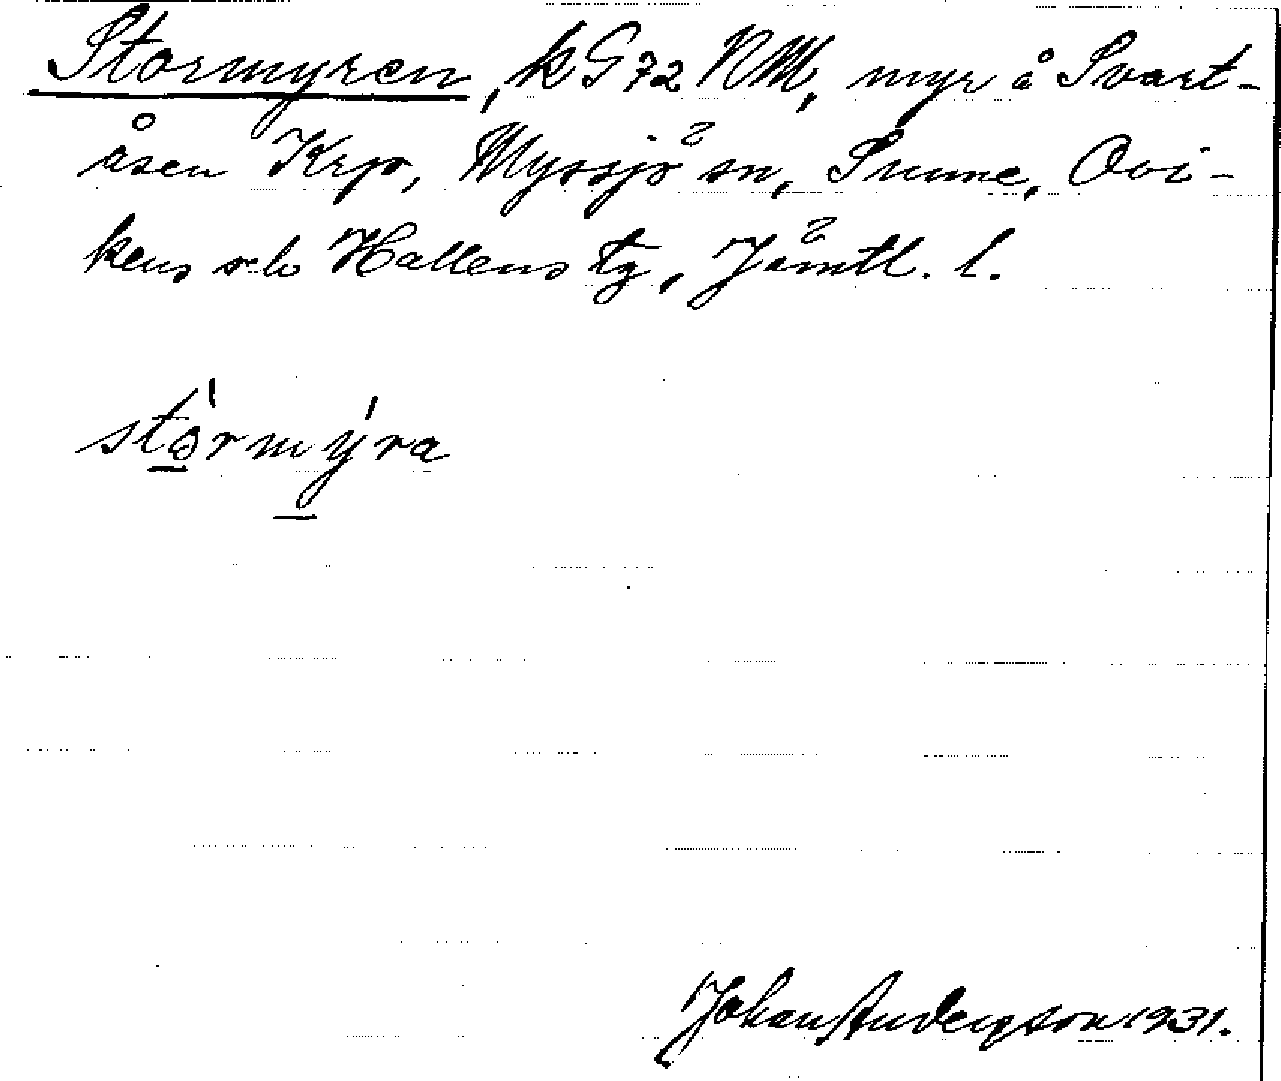 Stormyren, k G 72 NM, myr å Svart-
åsen Krp, Myssjö sn, Sunne, Ovi-
kens o. Hallens tg, Jämtl. l.
stormyra
Johan Anderson 1931.